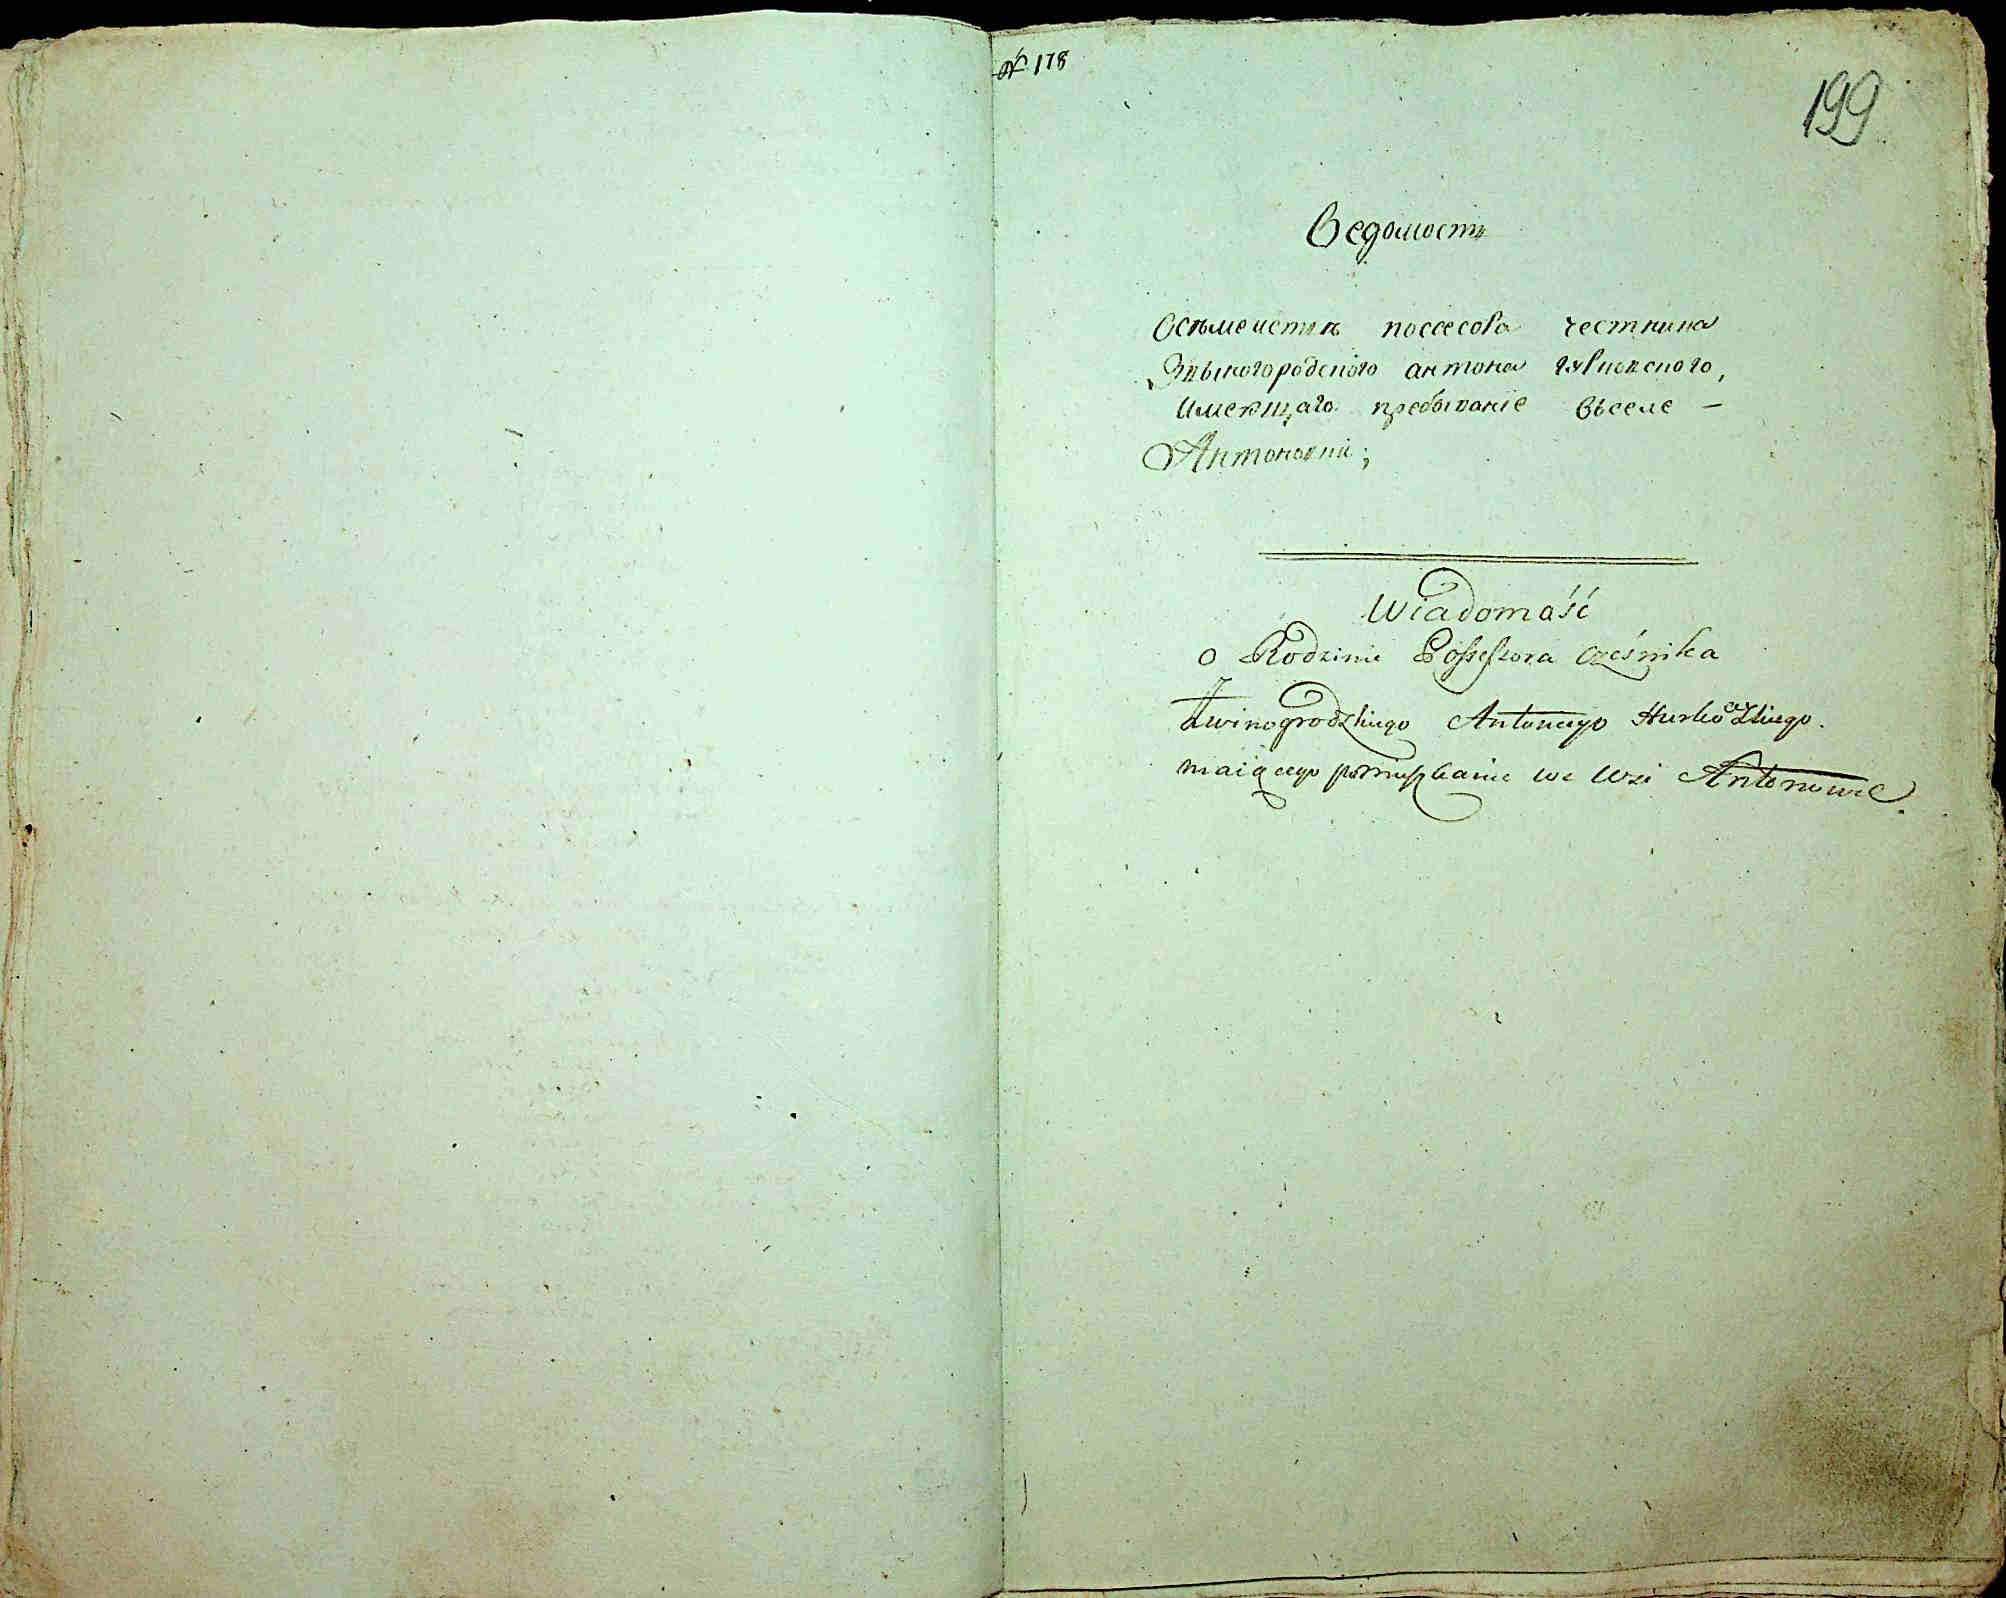 № 178
199
Ведомость
Осемеистве поссесора чесника
Звыногородского антона гурковского,
имеющаго пребывание въселе —
Антоновки;
Wiadomość
o Rodzinie Possessora Cześnika
Zwinogrodzkiego Antoniego Hurkowskiego.
maiącego pomieszkanie we Wsi Antonowce